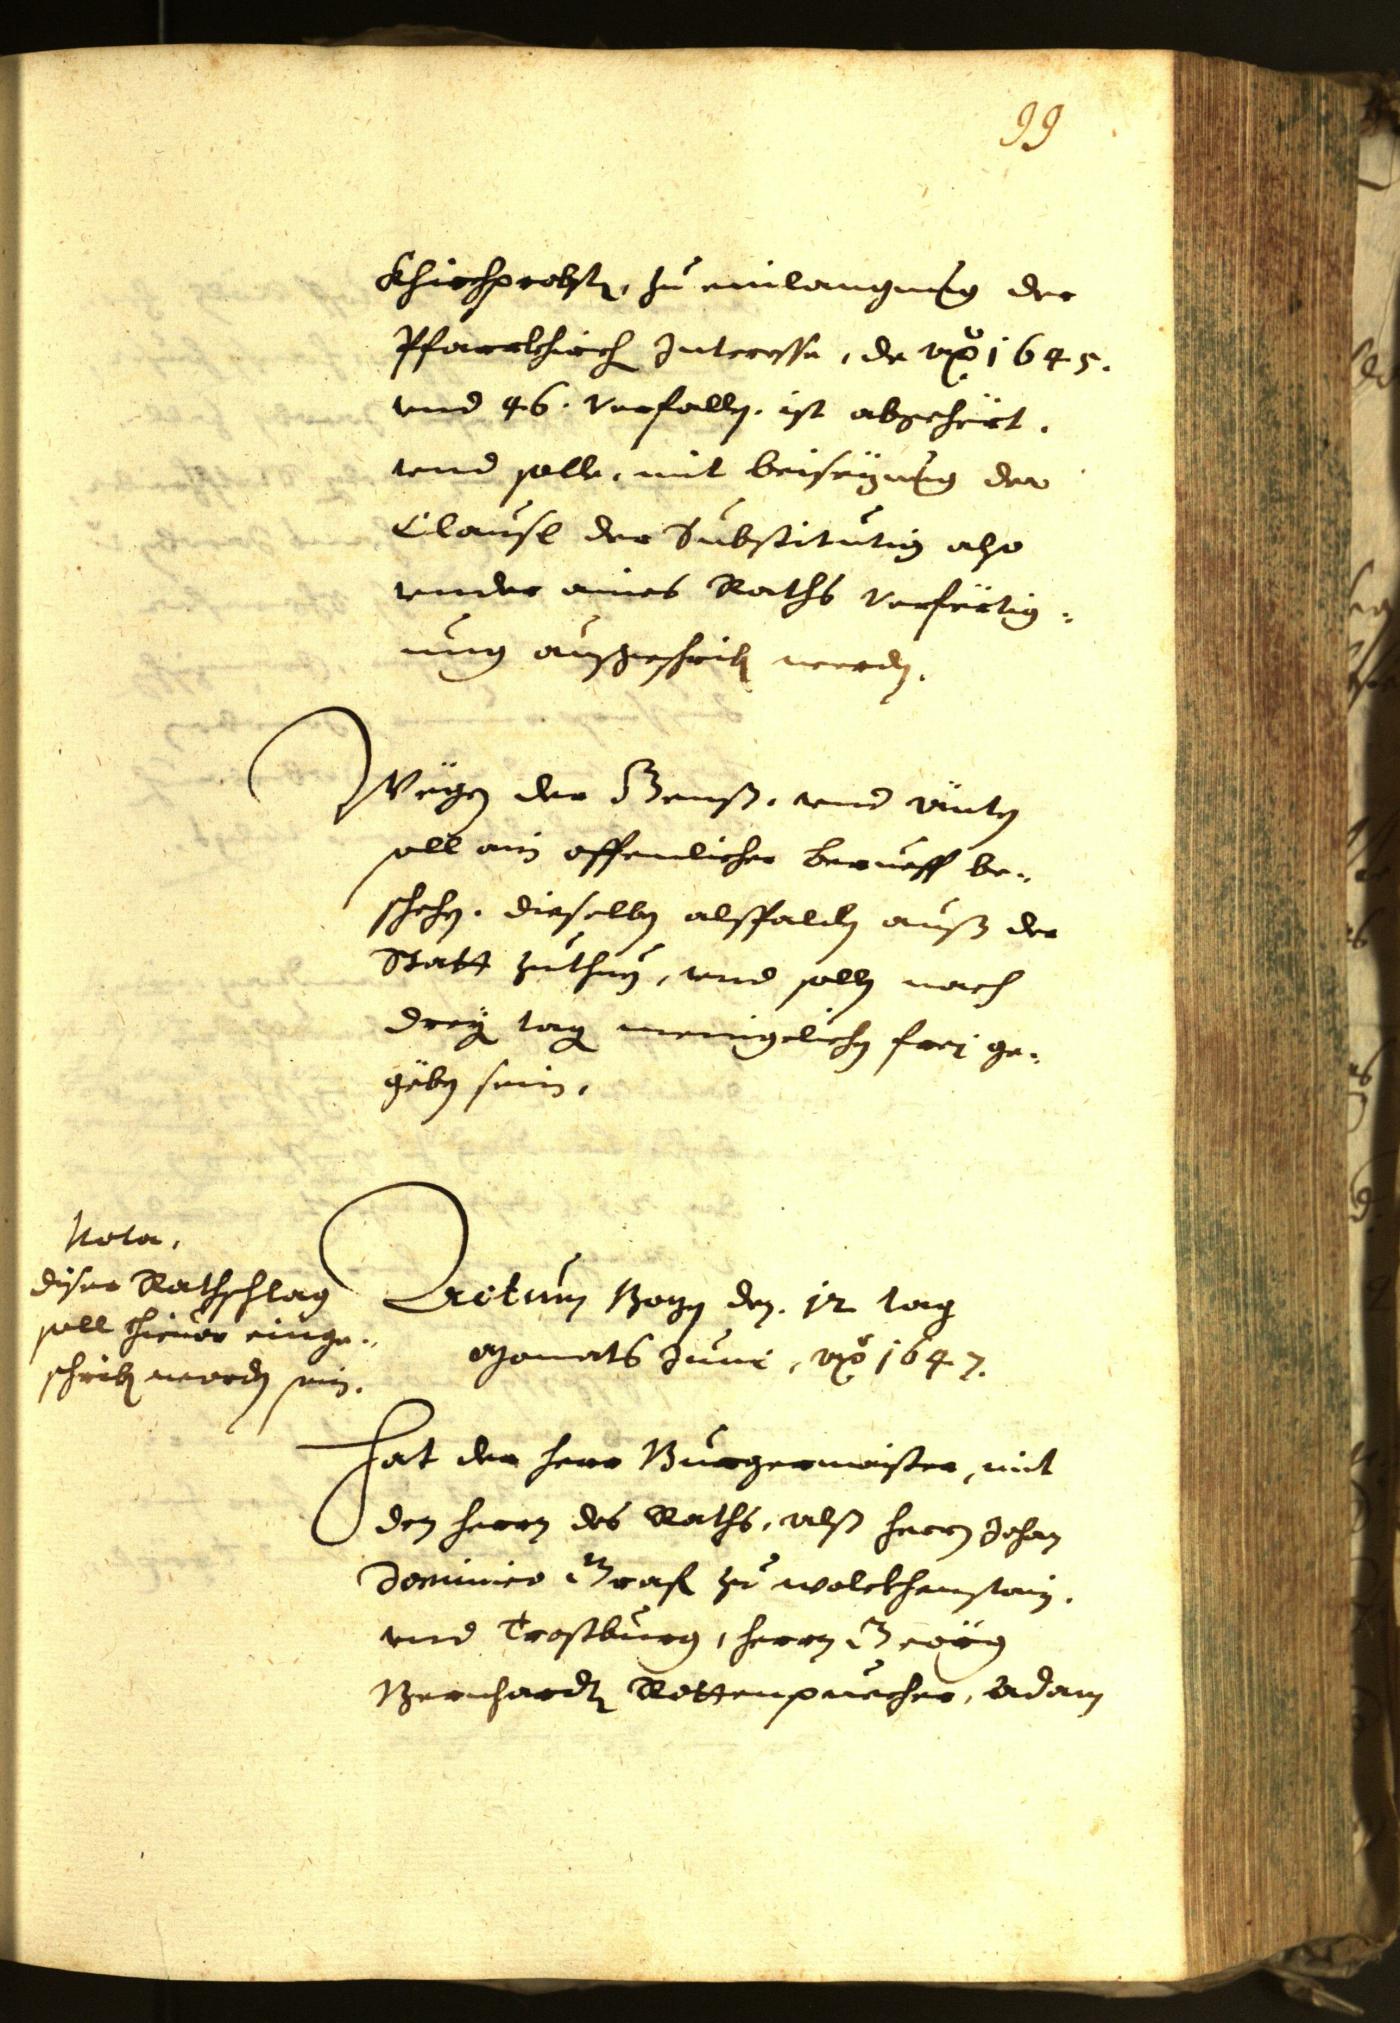 99
Khirchprobst, zu einlangung der
Pfarrkhirch Interesse, de Aõ 1645.
vnd 46. verfallen. ist abgehört.
vnd solle, mit beisezung der
Clausl der Substitution also
vnder aines Raths verfertig=
ung außgeschriben werden.
Wegen der Genß. vnd Änten
soll ain offentlicher berueff be=
schehen. dieselben alßpalden auß der
Statt zuthuen, vnd sollen nach
dreÿ tag menigelichen frei ge=
geben sein.
Nota.
diser Rathschlag
soll hieuor einge=
schriben worden sein.
Actum Bozen den. 12 tag
Monats Juni, Aõ 1647.
Hat der herr Burgermaister, mit
den herrn des Raths, alß herrn Johan
Dominico Graf zu Wolckhenstain.
vnd Trostburg, herrn Georg
Bernhardt Rottenpuecher, Adam